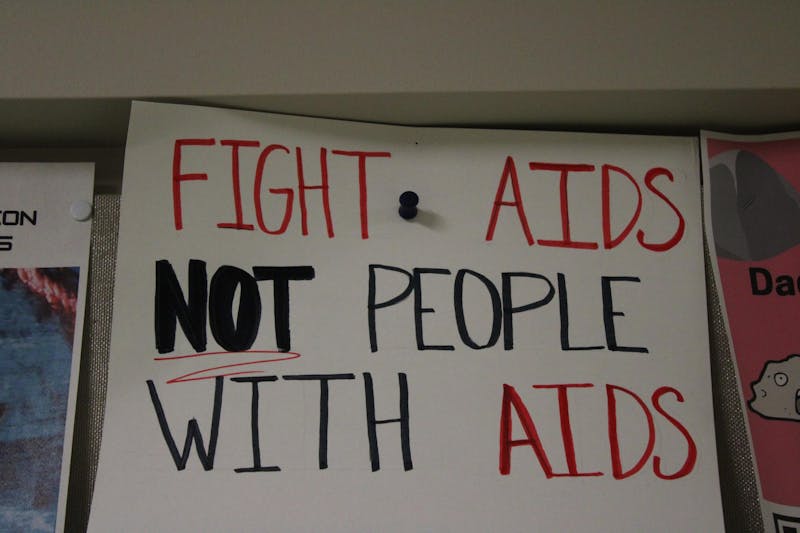 FIGHT AIDS
NOT PEOPLE
WITH AIDS